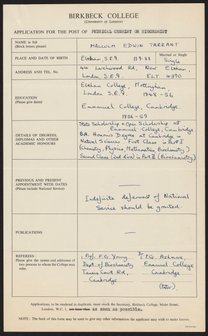 BIRKBECK COLLEGE
(UNIVERSITY OF LONDON)
APPLICATION FOR THE POST OF PHYSICAL CHEMIST OR BIOCHEMIST
NAME in full
(Block letters please)
MALCOLM EDWIN TARRANT
PLACE AND DATE OF BIRTH
Eltham, S.E.9.
Married or Single
Single
ADDRESS AND TEL. No.
Road, New Eltham,
London, S.E.9.
EDUCATION
(Please give dates)
Eltham College, Mottingham
London S.E.9.
Emmanuel College, Cambridge
DETAILS OF DEGREES,
DIPLOMAS AND OTHER
ACADEMIC HONOURS
State Scholarship & Open Scholarship at
Emmanuel College, Cambridge
B.A. Honours Degree at Cambridge in
Natural Science First Class in Part I
(Chemistry, Physics, Mathematics, Biochemistry)
Second Class in Part II (Biochemistry)
PREVIOUS AND PRESENT
APPOINTMENT WITH DATES
(Please include National Service)
Indefinite deferment of National
Service should be granted.
PUBLICATIONS
REFEREES
Please give the names and addresses of
two persons to whom the College may
refer.
1. Prof. F.G. Young
Dept of Biochemistry
Tennis Court Rd.,
Cambridge
2.
Emmanuel College,
Cambridge
(Tutor)
Applications, to be rendered in duplicate, must reach the Secretary, Birkbeck College, Malet Street,
London, W.C. 1, as soon as possible.
NOTE. The back of this form may be used to give any other information the applicant may wish to make known.